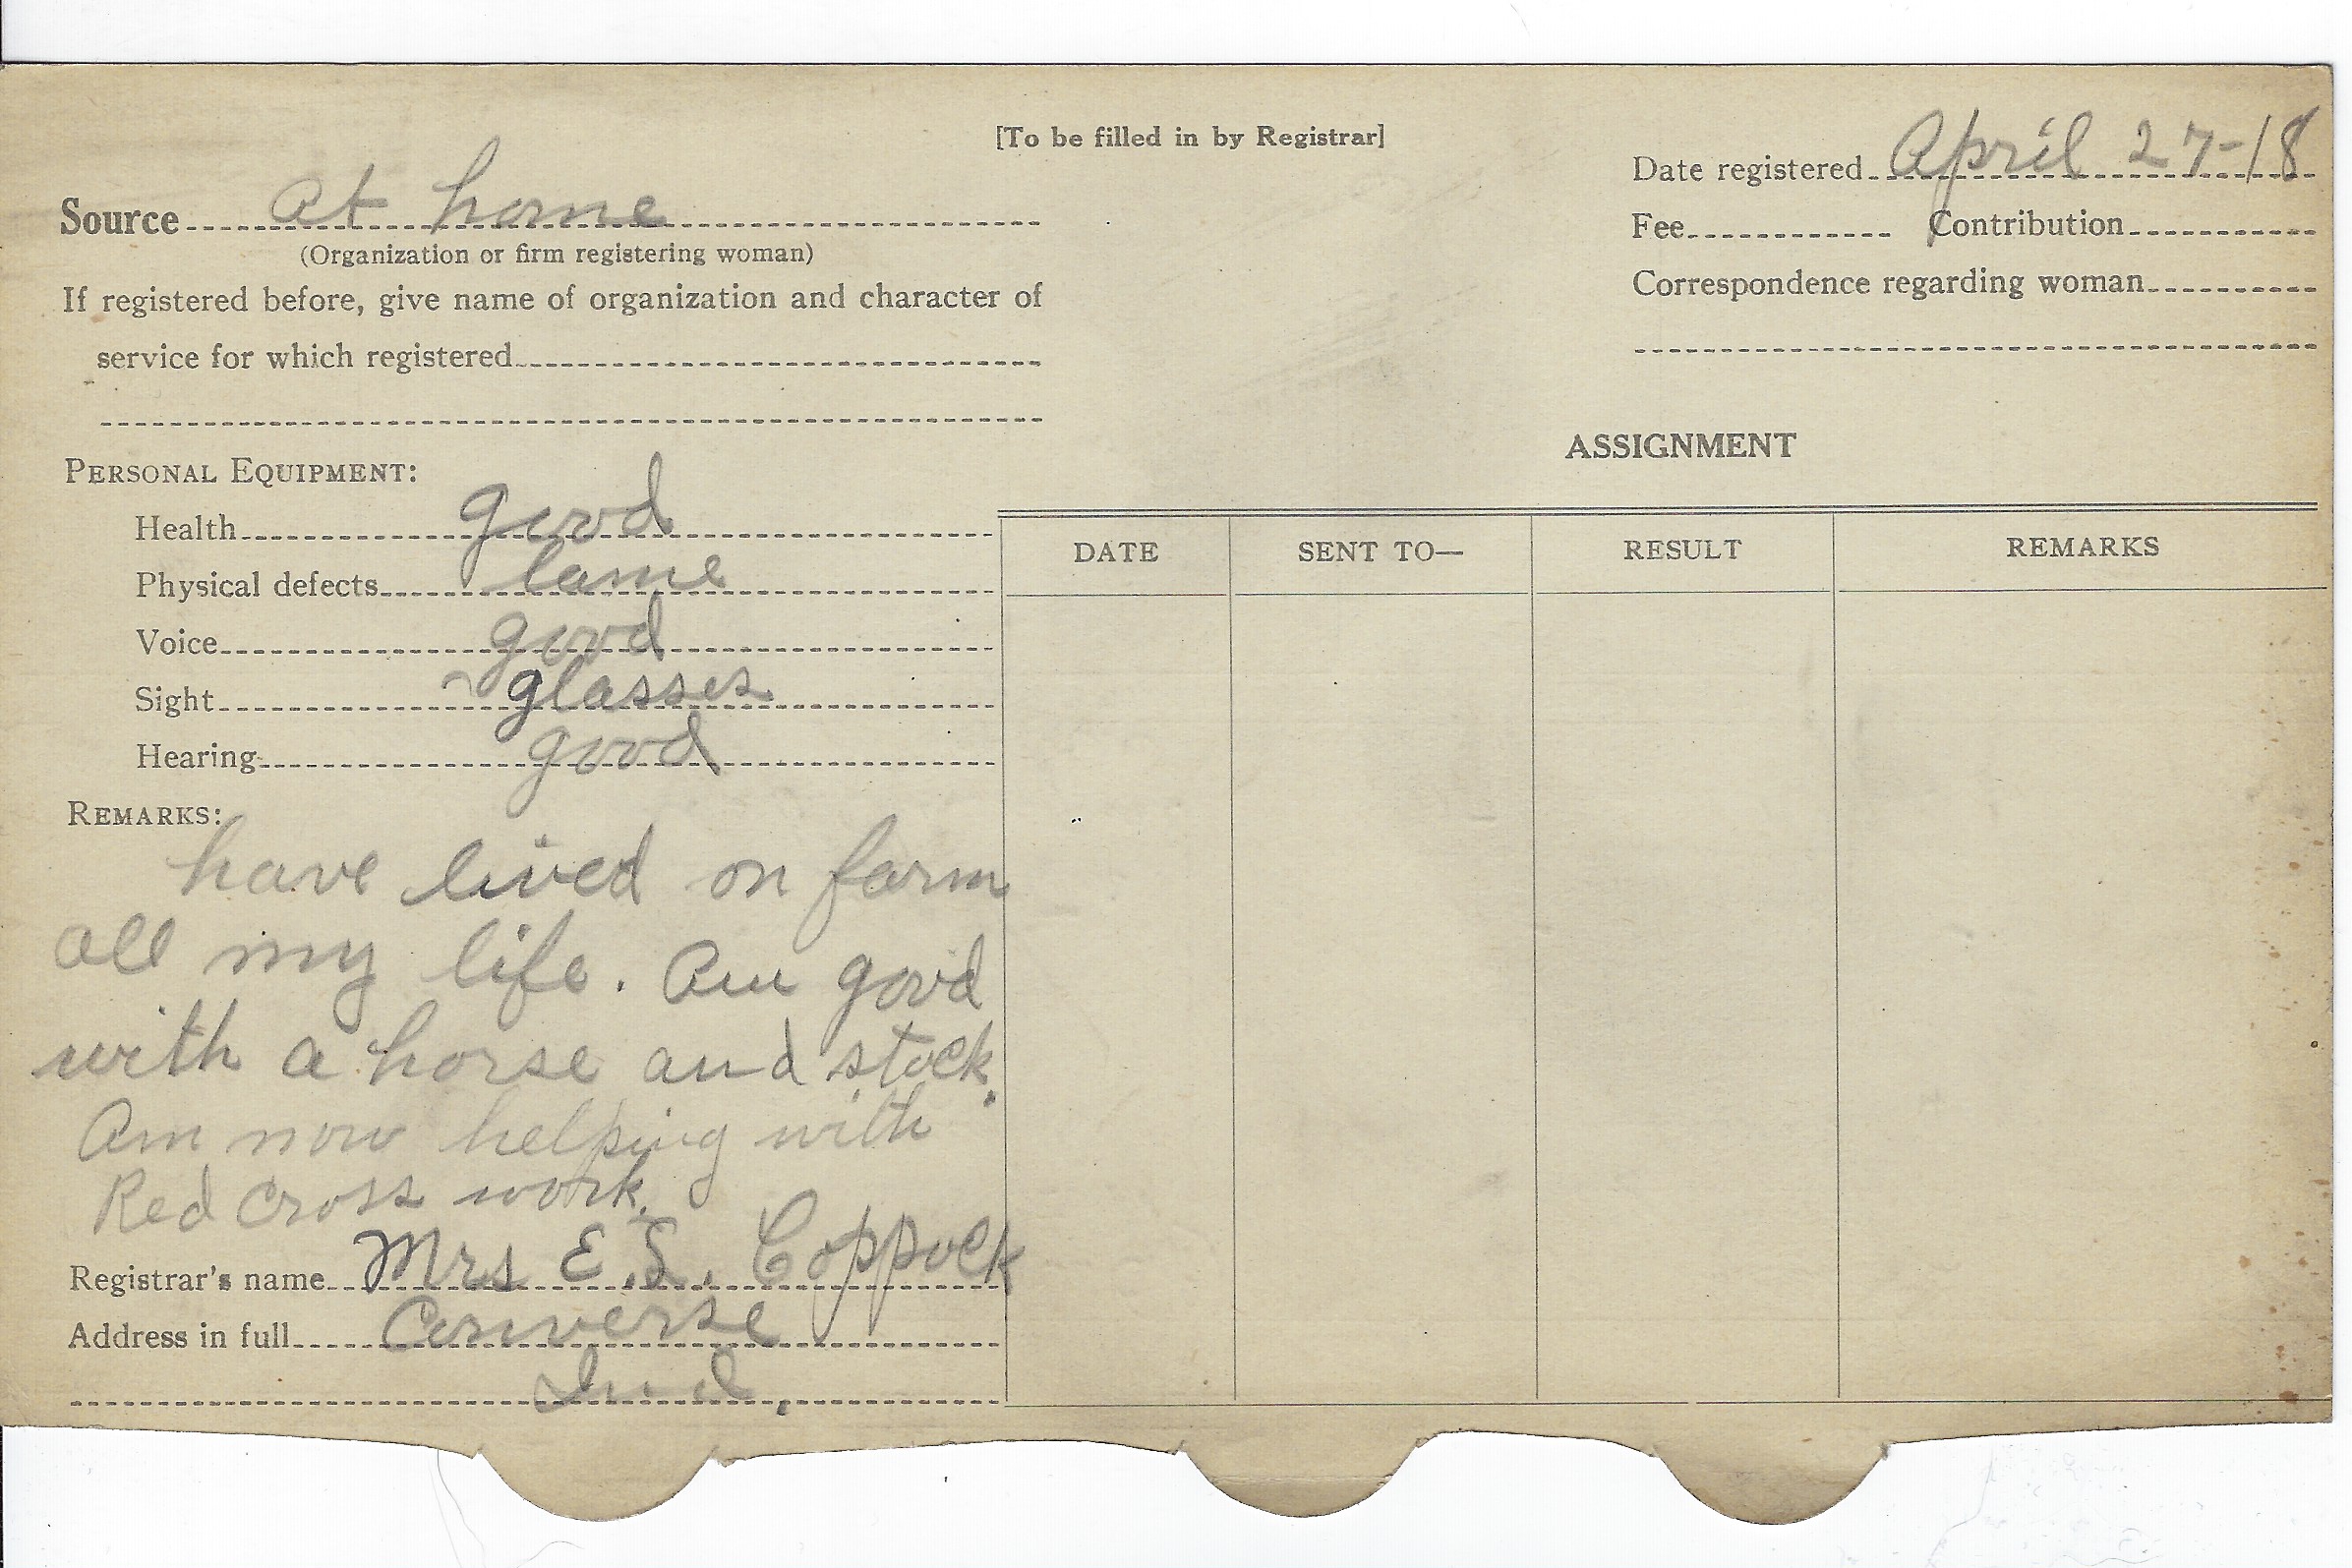 [To be filled in by Registrar]
Date registered April 27-18
Source at home
(Organization or firm registering woman)
Fee Contribution
If registered before, give name of organization and character of
service for which registered
Correspondence regarding woman
PERSONAL EQUIPMENT:
Health good
Physical defects lame
Voice good
Sight glasses
Hearing good
REMARKS:
have lived on farm
all my life. Am good
with a horse and stock.
Am now helping with
Red Cross work.
Registrar's name Mrs E.S. Coppock
Address in full Converse
Ind.
ASSIGNMENT
DATE SENT TO— RESULT REMARKS